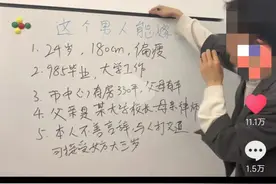 这个男人能嫁
1. 24岁，180cm，偏瘦
2. 985毕业，大学工作
3. 市中心有房330平，父母有车
4. 父亲是某大学校长 母亲律师
5. 本人不善言辞，与人打交道
可接受女方大三岁
11.1万
1.5万